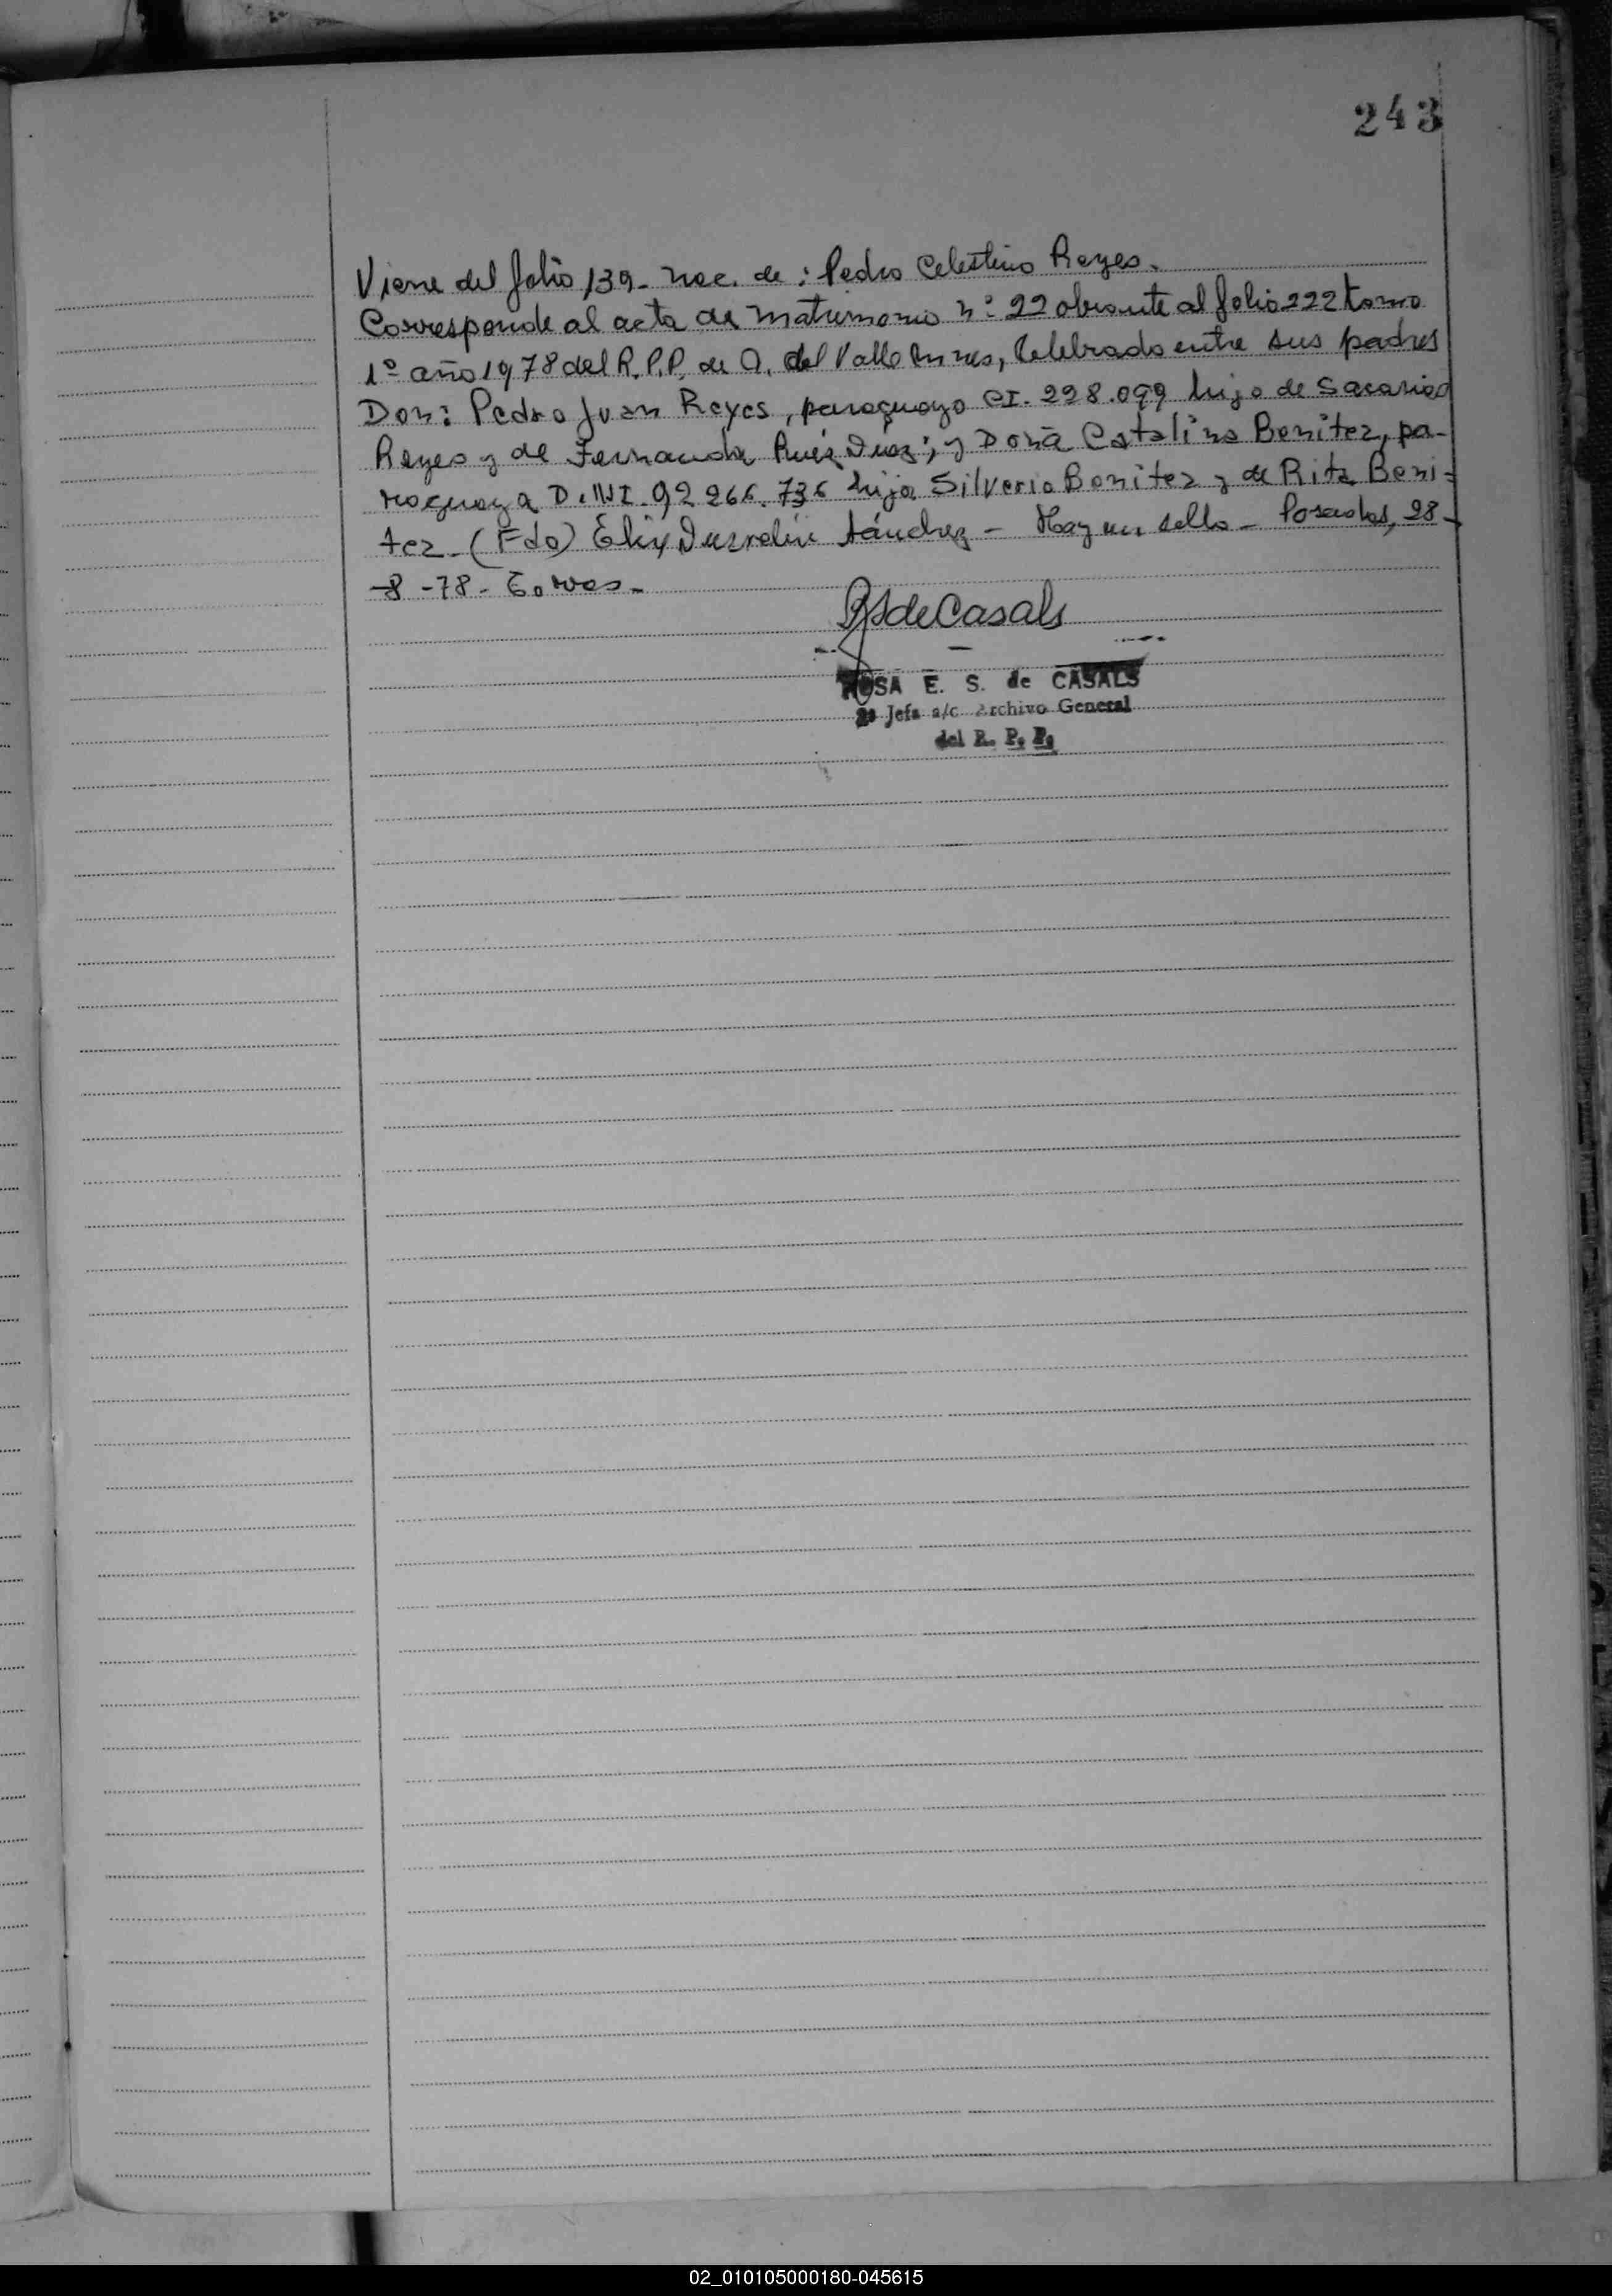 243
Viene del folio 139- nac. de: Pedro Celestino Reyes.
Corresponde al acta de matrimonio n: 22 obrante al folio 222 tomo
1º año 1978 del R.P.P. de A. del Valle Mnes, Celebrado entre sus padres
Don: Pedro Juan Reyes, paraguayo CI. 228.099 hijo de Sacarias
Reyes y de Fernanda Ruiz Diaz; y Doña Catalina Benitez, pa-
raguaya D.NI. 92 266.736 hija Silverio Benitez y de Rita Beni-
tez-(Fdo) Sánchez - Hay un sello - Posadas, 28-
-8-78-
RSdeCasals
ROSA E. S. de CASALS
2º Jefa a/c Archivo General
del R. P. P.
02_010105000180-045615